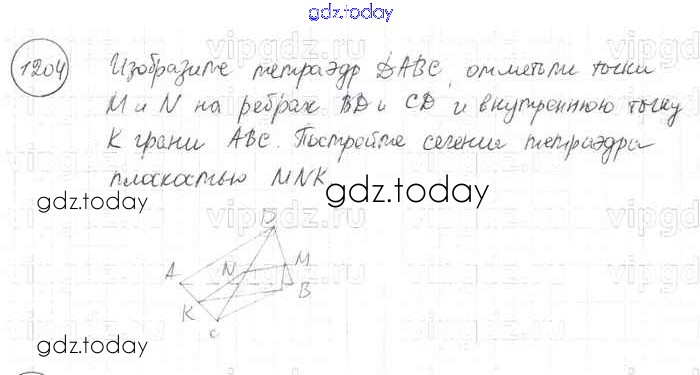 gdz.today
1204
Изобразите тетраэдр DABC, отметьте точки
M и N на ребрах BD и CD и внутреннюю точку
K грани ABC. Постройте сечение тетраэдра
плоскостью MNK
gdz.today
gdz.today
D
A N M
B
K
C
gdz.today